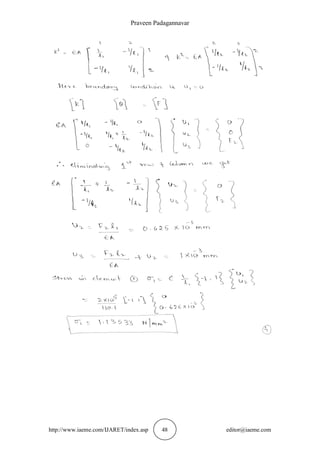 Praveen Padagannavar
1 2 2 3
k¹ = EA [ 1/l₁ -1/l₁ ] 1 q k² = EA [ 1/l₂ -1/l₂ ] 2
[ -1/l₁ 1/l₁ ] 2 [ -1/l₂ 1/l₂ ] 3
Here boundary condition is u₁ = 0
[K] [Q] = [F]
EA [ 1/l₁ -1/l₁ 0 ] { u₁ } = { 0 }
[ -1/l₁ 1/l₁ + 1/l₂ -1/l₂ ] { u₂ } { 0 }
[ 0 -1/l₂ 1/l₂ ] { u₃ } { F₂ }
∴ eliminating 1st row & column we get
EA [ 1/l₁ + 1/l₂ -1/l₂ ] { u₂ } = { 0 }
[ -1/l₂ 1/l₂ ] { u₃ } { F₂ }
u₂ = F₂l₁/EA = 0.625 × 10⁻³ mm
u₃ = F₂l₂/EA + u₂ = 1×10⁻³ mm
Stress in element ① σ₁ = E 1/l₁ {-1 1} { u₁ u₂ }
= 2×10⁵ [-1 1] { 0
σ₁ = 1.13533 N/mm²
http://www.iaeme.com/IJARET/index.asp 48 editor@iaeme.com